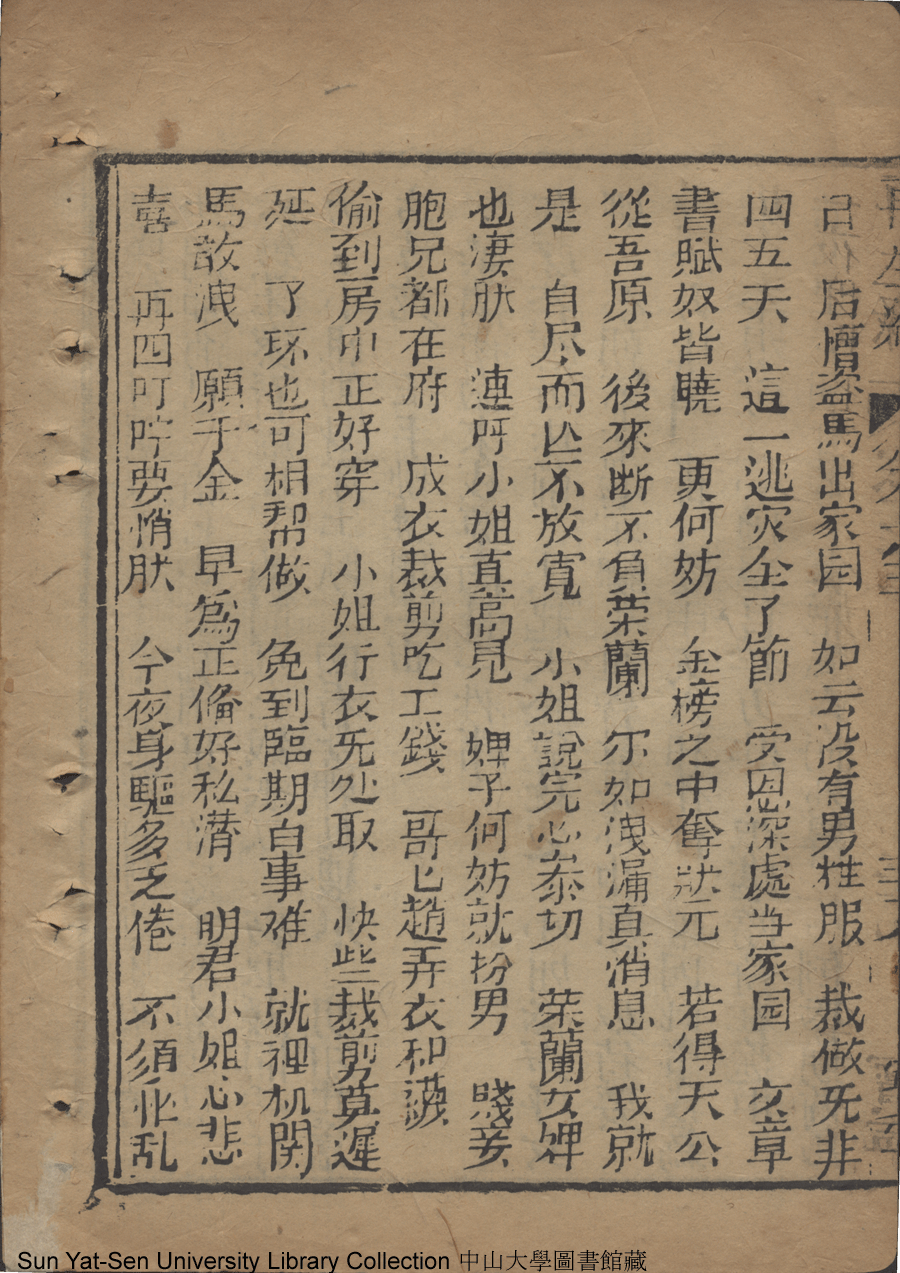 后檀盜馬出家园 如云没有男性服 裁做旡非
四五天 這一逃灾全了節 受恩深處当家园 文章
書賦奴皆曉 更何妨 金榜之中奪狀元 若得天公
從吾原 後來断不負荣蘭 尔如洩漏真消息 我就
是 自尽而亡不放寛 小姐說完心泰切 荣蘭女婢
也淒肰 連呼小姐直高見 婢子何妨就扮男 賤妾
胞兄都在府 成衣裁剪吃工錢 哥匕趙弄衣和襪
偷到房中正好穿 小姐行衣旡处取 快些裁剪莫遲
延 了环也可相帮做 免到臨期百事难 就裡机関
馬敌洩 願千金 早為正俻好私潜 明君小姐心悲
喜 再四叮咛要悄肰 今夜身驅多乏倦 不須乱
Sun Yat-Sen University Library Collection 中山大學圖書館藏